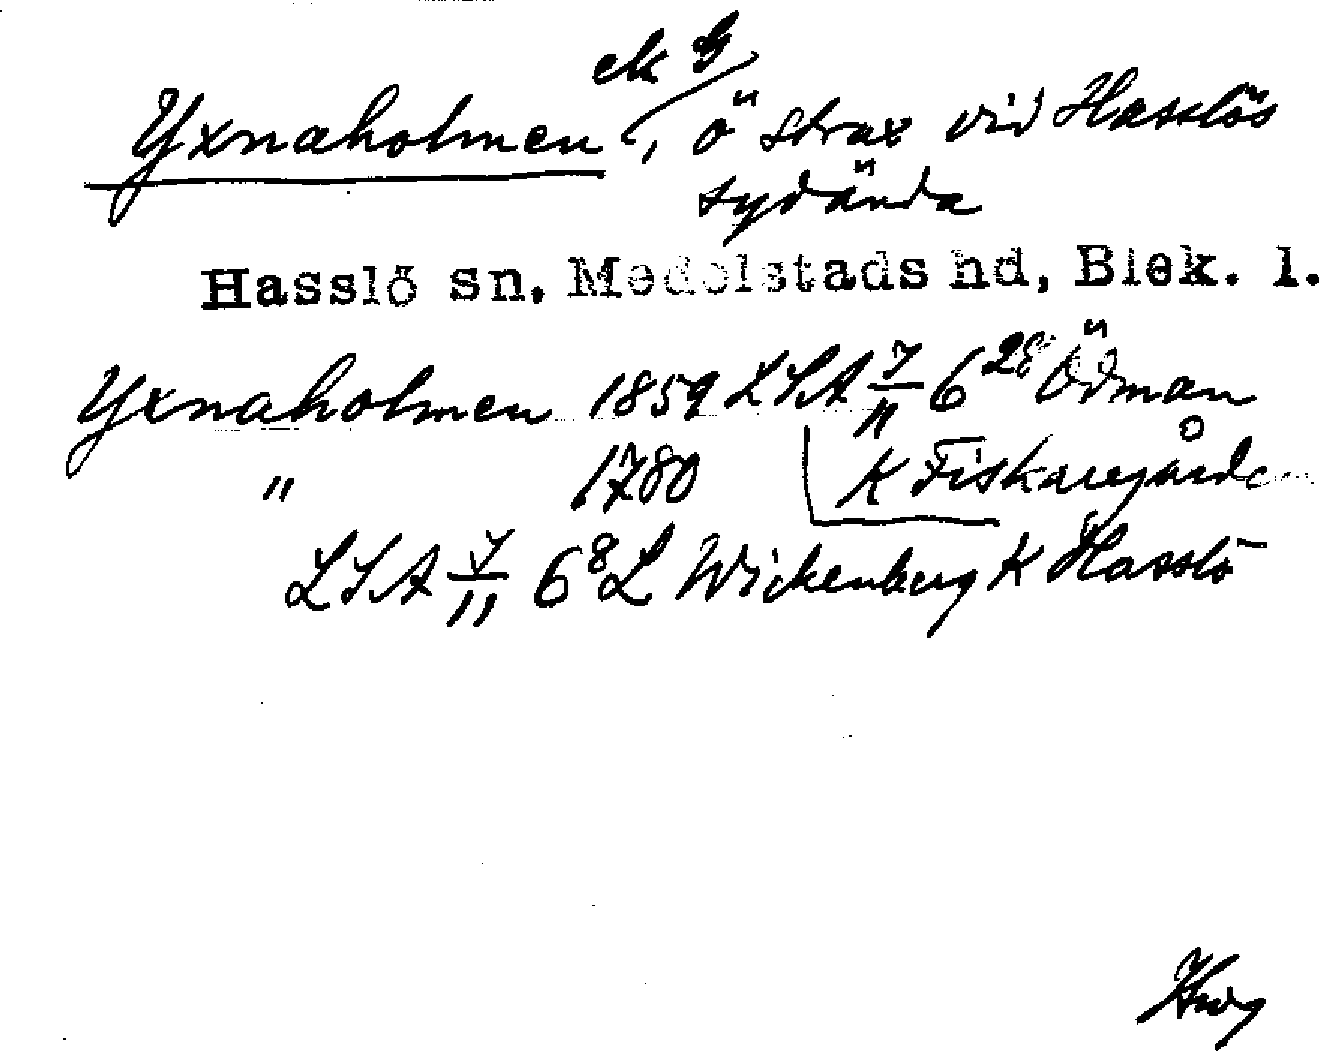 ek G
Yxnaholmen, ö strax vid Hasslös
sydända
Hasslö sn. Medelstads hd, Blek. l.
Yxnaholmen 1859 LSA 7/11 6 28 Ödman
" 1780 K Fiskaregården
LSA 7/11 6 8 L Wickenberg K Hasslö